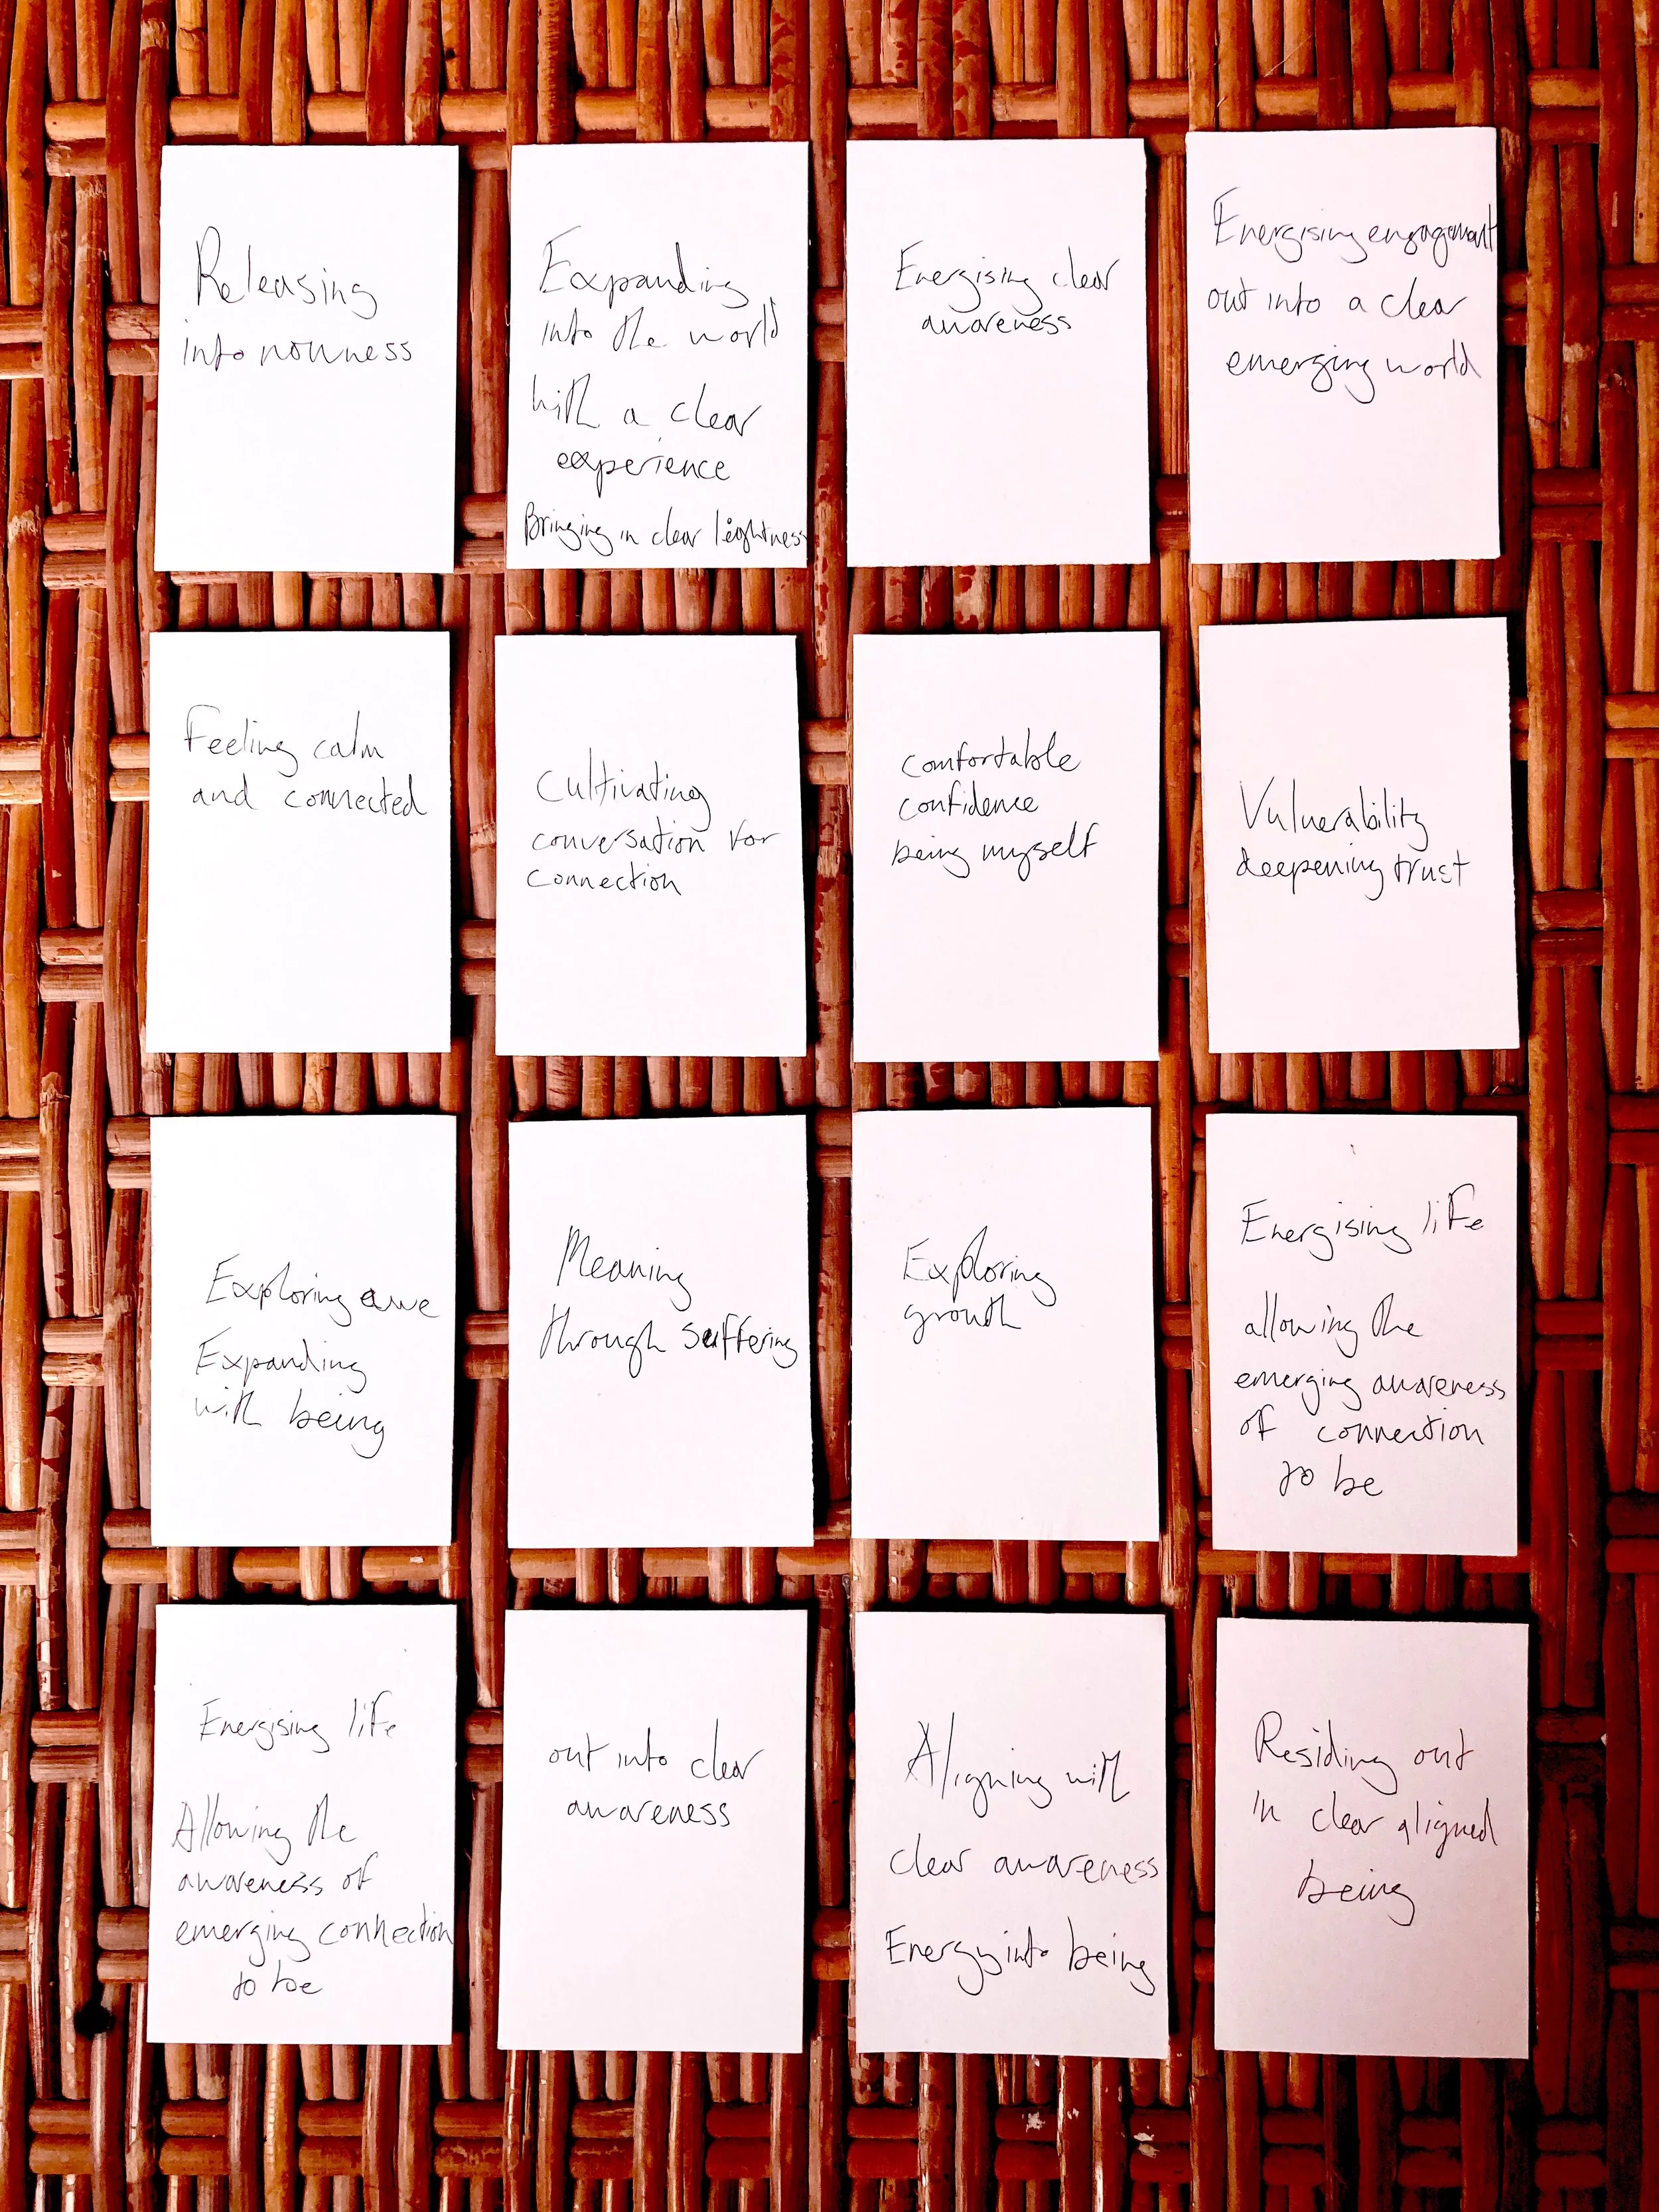 Releasing
into nowness
Expanding
into the world
with a clear
experience
Bringing in clear lightness
Energising clear
awareness
Energising engagement
out into a clear
emerging world
Feeling calm
and connected
Cultivating
conversation for
connection
comfortable
confidence
being myself
Vulnerability
deepening trust
Exploring awe
Expanding
with being
Meaning
through suffering
Exploring
growth
Energising life
allowing the
emerging awareness
of connection
to be
Energising life
Allowing the
awareness of
emerging connection
to be
out into clear
awareness
Aligning with
clear awareness
Energy into being
Residing out
in clear aligned
being